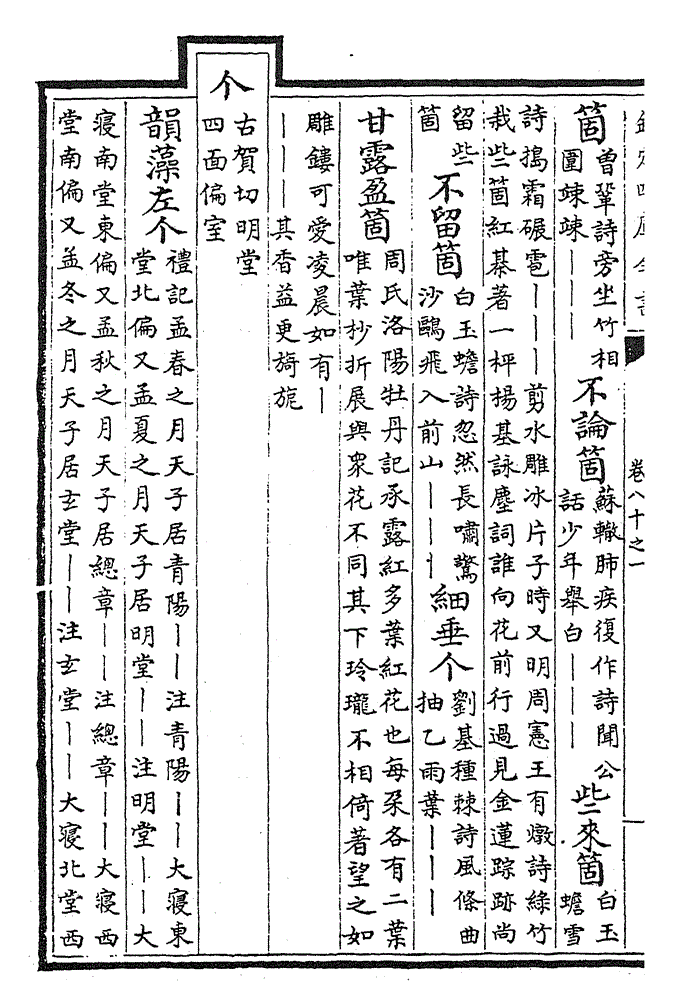 欽定四庫全書
卷八十之一
箇
曾鞏詩旁坐竹相
圍竦竦｜｜｜
不論箇
蘇轍肺疾復作詩聞公
話少年舉白｜｜｜
些來箇
白玉
蟾雪
詩搗霜碾雹｜｜｜剪水雕冰片子時又明周憲王有燉詩綠竹
栽些箇紅綦著一枰揚基詠塵詞誰向花前行過見金蓮踪跡尚
留些
箇
不留箇
白玉蟾詩忽然長嘯驚
沙鷗飛入前山｜｜｜
細垂个
劉基種棘詩風條曲
抽乙雨葉｜｜｜
甘露盈箇
周氏洛陽牡丹記承露紅多葉紅花也每朶各有二葉
唯葉杪折展與衆花不同其下玲瓏不相倚著望之如
雕鏤可愛凌晨如有｜
｜｜｜其香益更旖旎
个
古賀切明堂
四面偏室
韻藻左个
禮記孟春之月天子居青陽｜｜注青陽｜｜大寢東
堂北偏又孟夏之月天子居明堂｜｜注明堂｜｜大
寢南堂東偏又孟秋之月天子居總章｜｜注總章｜｜大寢西
堂南偏又孟冬之月天子居玄堂｜｜注玄堂｜｜大寢北堂西